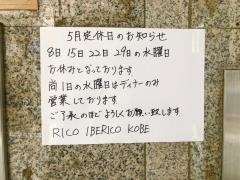 5月定休日のお知らせ
8日 15日 22日 29日の水曜日
お休みとなっております
尚1日の水曜日はディナーのみ
営業しております
ご了承のほどよろしくお願い致します
RICO IBERICO KOBE